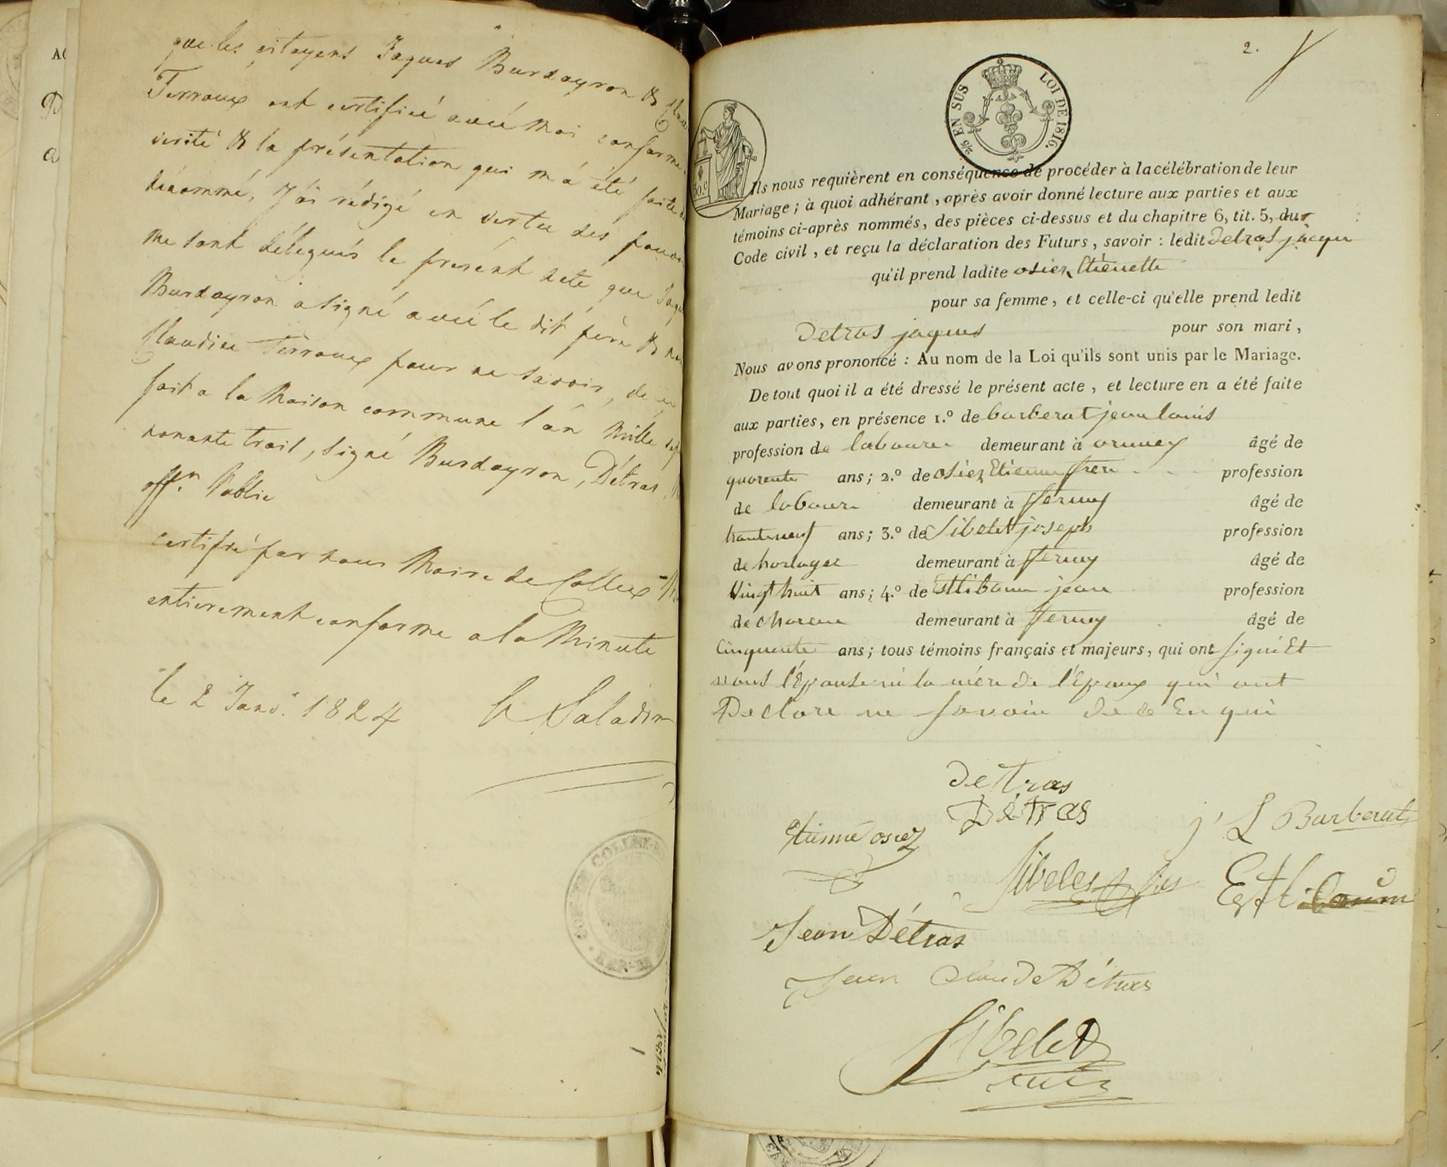 que les citoyens Jaques Burdayron &
Terroux ont certifié avec moi conforme
verité & la présentation qui m'a été faite
dénommé, J'ai rédigé en vertu des pouvoi
me sont délegués le présent acte que Jaqu
Burdayron a signé avec le dit père & non
Claudine Terroux pour ne savoir, de ce
fait a la Maison commune l'an mille sep
nonante trois, signé Burdayron, Détras
offer. Public
certifié par nous Maire de Collex
entierement conforme a la Minute
le 2 Janv. 1824 Saladin
2.
25 EN SUS LOI DE 1816.
Ils nous requièrent en conséquence de procéder à la célébration de leur
Mariage ; à quoi adhérant , après avoir donné lecture aux parties et aux
témoins ci-après nommés, des pièces ci-dessus et du chapitre 6, tit. 5, du
Code civil , et reçu la déclaration des Futurs , savoir : ledit detras jaque
qu'il prend ladite osiez Etiénette
pour sa femme , et celle-ci qu'elle prend ledit
detras jaques pour son mari ,
Nous avons prononcé : Au nom de la Loi qu'ils sont unis par le Mariage.
De tout quoi il a été dressé le présent acte , et lecture en a été faite
aux parties, en présence 1.º de barberat jean louis
profession de laboureur demeurant à ornney âgé de
quarente ans ; 2.º de osiez Etienne frere profession
de laboureur demeurant à ferney âgé de
trenteneuf ans ; 3.º de Sibelet joseph profession
de horloger demeurant à ferney âgé de
Vingt huit ans ; 4.º de jean profession
de demeurant à ferney âgé de
Cinquente ans ; tous témoins français et majeurs, qui ont signé Et
nous l'Epouse ni la mére de l'Epoux qui ont
Declare ne savoir de ce Enquis
detras
Détras
J L Barberat
Etienne osiez
Sibelet
Jean Détras
Jean Claude Détras
Sibelet